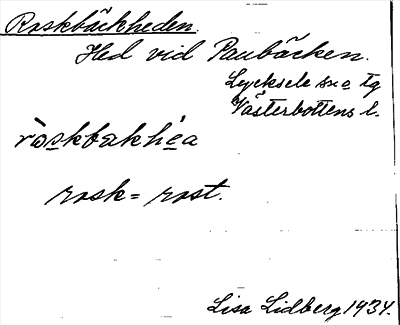 Roskbäckheden.
Hed vid Paubäcken.
Lycksele sn o tg
Västerbottens l.
ròskbækhéa
rosk = rost.
Lisa Lidberg 1934.